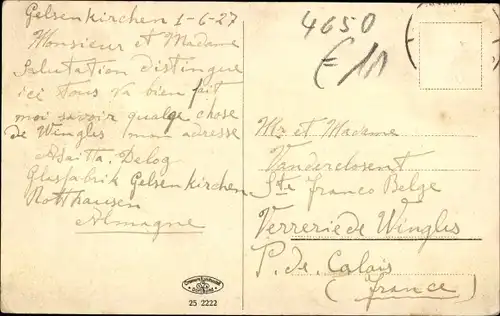 Gelsenkirchen 1-6-27
Monsieur et Madame
Salutation distingue
ici tous va bien fait
moi savoir qualge chose
de Wingles mon adresse
Delog
Glasfabrik Gelsenkirchen
Rotthausen
Almagne
4650
€11
Mr et Madame
Vanderclosent
Ste Franco Belge
Verrerie de Wingles
P. de. Calais
(France)
25 2222